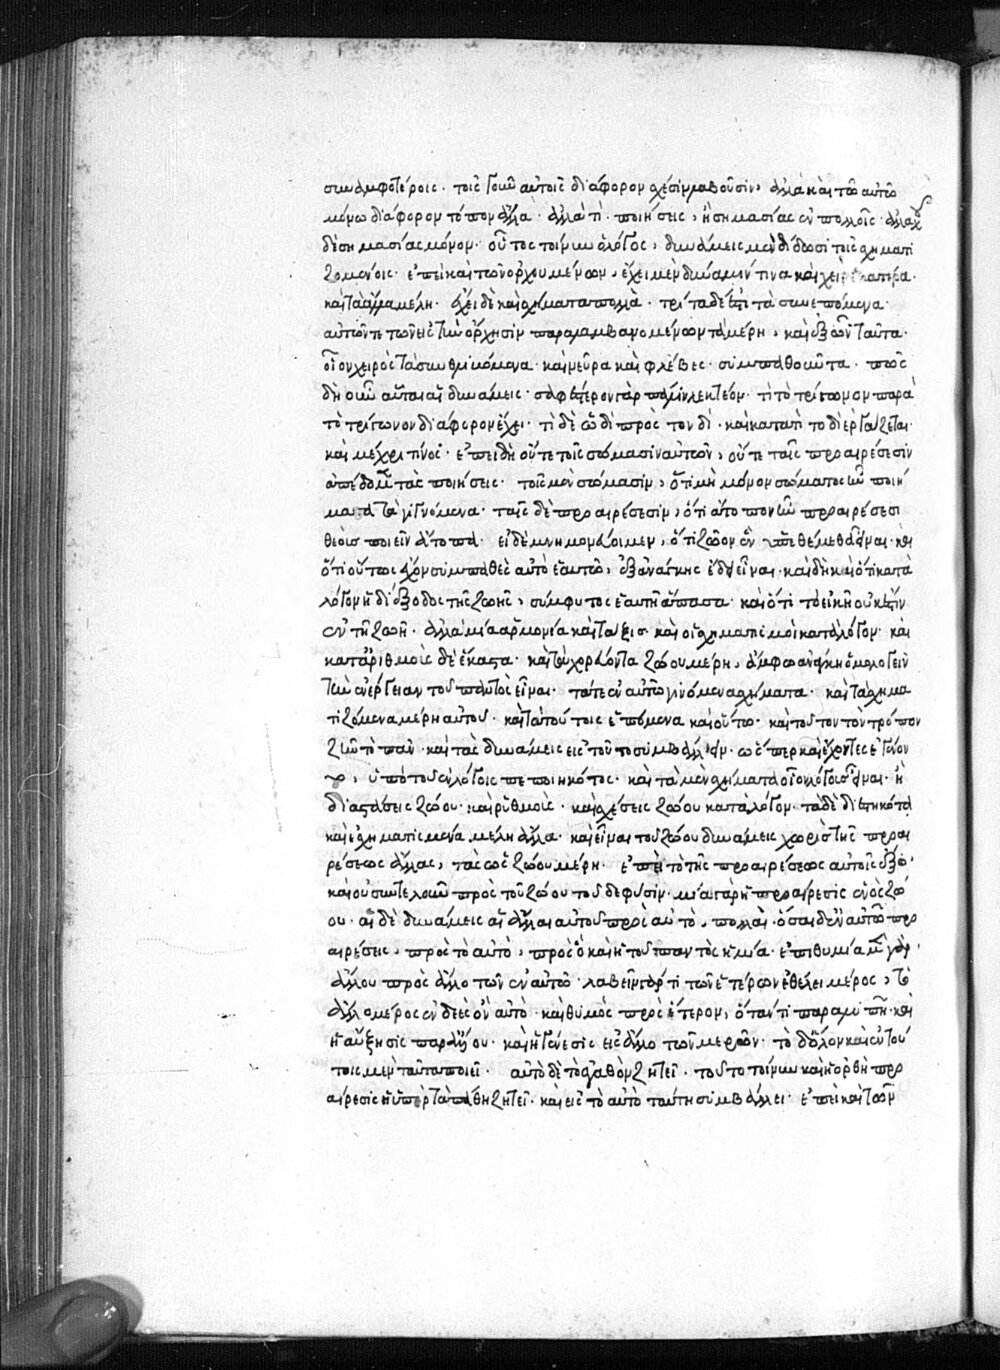 συναμφοτέροις· τοῖς γοῦν αὐτοῖς διάφορον σχέσιν λαβοῦσιν, ἀλλὰ καὶ τῶ αὐτῶ
μόνω διάφορον τόπον ἄλλα· ἀλλὰ τί· ποιήσεις, ἢ σημασίας ἐν πολλοῖς· ἀλλαχοῦ
δὲ σημασίας μόνον· οὗτος τοίνυν ὁ λόγος, δυνάμεις μὲν δίδωσι τοῖς σχηματι
ζομένοις· ἐπεὶ καὶ τῶν ὀρχουμένων, ἔχει μὲν δύναμίν τινα καὶ χεὶρ ἑκατέρα·
καὶ τὰ ἄλλα μέλη· ἔχει δὲ καὶ σχήματα πολλὰ· τρίτα δέ ἐστι τὰ συνεπόμενα·
αὐτῶν τε τῶν εἰς τὴν ὄρχησιν παραλαμβανομένων τὰ μέρη, καὶ ἐξ ὧν ταῦτα·
οἷον χειρὸς τὰ συνθλιβόμενα· καὶ νεῦρα καὶ φλέβες· συμπαθοῦντα· πῶς
δὴ οὖν αὗται αἱ δυνάμεις· σαφέστερον γὰρ πάλιν λεκτέον· τί τὸ τρίγωνον παρὰ
τὸ τρίγωνον διάφορον ἔχει· τί δὲ ὡδὶ πρὸς τονδὶ· καὶ κατὰ τί τοδὶ ἐργάζεται·
καὶ μέχρι τίνος· ἐπειδὴ οὔτε τοῖς σώμασιν αὐτῶν, οὔτε ταῖς προαιρέσεσιν
ἀπέδομεν τὰς ποιήσεις· τοῖς μὲν σώμασιν, ὅτι μὴ μόνον σώματος ἦν ποιή
ματα τὰ γιγνόμενα· ταῖς δὲ προαιρέσεσιν, ὅτι ἄτοπον ἦν προαιρέσεσι
θεοὺς ποιεῖν ἄτοπα· εἰ δὲ μνημονεύοιμεν, ὅτι ζῶον ἓν ὑπεθέμεθα εἶναι· καὶ
ὅτι οὕτως ἔχον συμπαθὲς αὐτὸ ἑαυτῶ, ἐξ ἀνάγκης ἔδει εἶναι· καὶ δὴ καὶ ὅτι κατὰ
λόγον ἡ διέξοδος τῆς ζωῆς, σύμφωνος ἑαυτῆ ἅπασα· καὶ ὅτι τὸ εἰκῆ οὐκ ἔστιν
ἐν τῆ ζωῆ· ἀλλὰ μία ἁρμονία καὶ τάξις· καὶ οἱ σχηματισμοὶ κατὰ λόγον· καὶ
κατ' ἀριθμοὺς δὲ ἕκαστα· καὶ τὰ χορεύοντα ζώου μέρη, ἄμφω ἀνάγκη ὁμολογεῖν
τὴν ἐνέργειαν τοῦ παντὸς εἶναι· τά τε ἐν αὐτῶ γινόμενα σχήματα· καὶ τὰ σχημα
τιζόμενα μέρη αὐτοῦ· καὶ τὰ τούτοις ἑπόμενα καὶ οὕτω· καὶ τοῦτον τὸν τρόπον
ζῆν τὸ πᾶν· καὶ τὰς δυνάμεις εἰς τοῦτο συμβάλλειν· ὥσπερ καὶ ἔχοντες ἐγένον
το, ὑπὸ τοῦ ἐν λόγοις πεποιηκότος· καὶ τὰ μὲν σχήματα οἷον λόγους εἶναι· ἢ
διαστάσεις ζώου· καὶ ῥυθμοὺς· καὶ σχέσεις ζώου κατὰ λόγον· τὰ δὲ διεστηκότα
καὶ ἐσχηματισμένα μέλη ἄλλα· καὶ εἶναι τοῦ ζώου δυνάμεις χωρὶς τῆς προαι
ρέσεως ἄλλας, τὰς ὡς ζώου μέρη· ἐπεὶ τὸ τῆς προαιρέσεως αὐτοῖς ἔξω·
καὶ οὐ συντελοῦν πρὸς τοῦ ζώου τοῦδε φύσιν· μία γὰρ ἡ προαίρεσις ἑνὸς ζώ
ου· αἱ δὲ δυνάμεις αἱ ἄλλαι αὐτοῦ πρὸς αὐτὸ, πολλαὶ· ὅσαι δ' ἐν αὐτῶ προ
αιρέσεις, πρὸς τὸ αὐτὸ, πρὸς ὃ καὶ ἡ τοῦ παντὸς ἡ μία· ἐπιθυμία μὲν γὰρ·
ἄλλου πρὸς ἄλλο τῶν ἐν αὐτῶ· λαβεῖν γάρ τι τῶν ἑτέρων ἐθέλει μέρος, τὸ
ἄλλο μέρος ἐνδεὲς ὂν αὐτὸ· καὶ θυμὸς πρὸς ἕτερον, ὅταν τι παραλυπῆ· καὶ
ἡ αὔξησις παρ' ἄλλου· καὶ ἡ γένεσις εἰς ἄλλο τῶν μερῶν· τὸ δ' ὅλον καὶ ἐν τού
τοις μὲν ταῦτα ποιεῖ· αὐτὸ δὲ τὸ ἀγαθὸν ζητεῖ· τοῦτο τοίνυν καὶ ἡ ὀρθὴ προ
αίρεσις ἡ ὑπὲρ τὰ πάθη ζητεῖ· καὶ εἰς τὸ αὐτὸ ταύτη συμβάλλει· ἐπεὶ καὶ τῶν